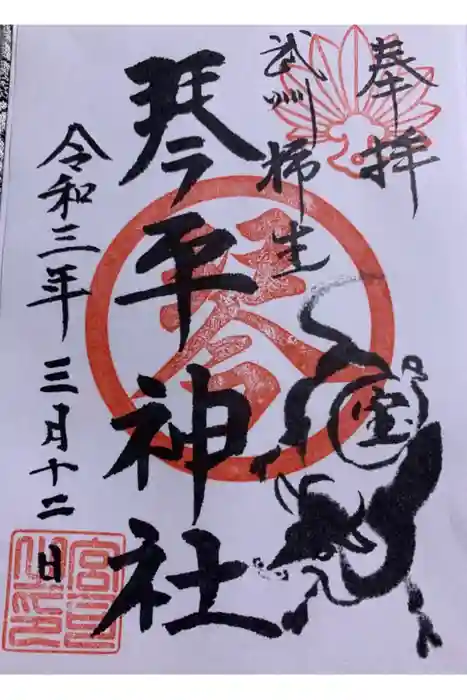 奉拝
武州柿生
琴平神社
令和三年三月十二日
金
宝
宮司之印